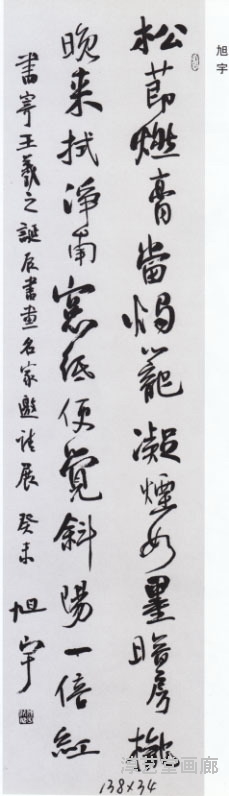 旭宇
松節燃膏當燭籠凝煙如墨暗房櫳
晚来拭淨南窓紙便覺斜陽一倍紅
書寄王羲之誕辰書畫名家邀請展 癸未 旭宇
138×34
堂画廊